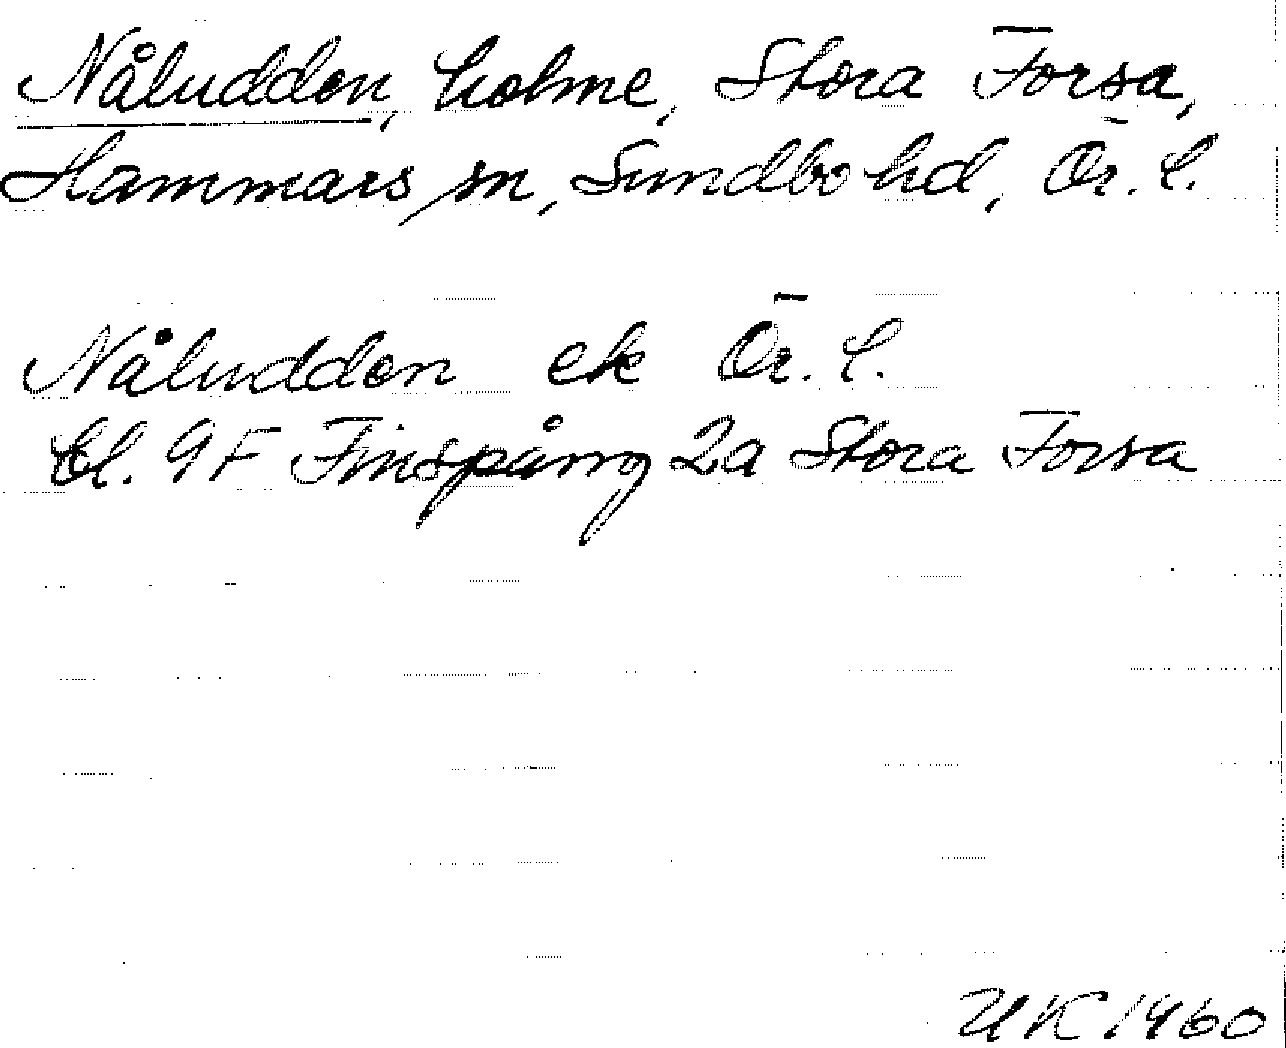 Nåludden, holme, Stora Forsa,
Hammars sn, Sundbo hd, Ör. l.
Nåludden ek Ör. l.
bl. 9F Finspång 2a Stora Forsa
UK 1960